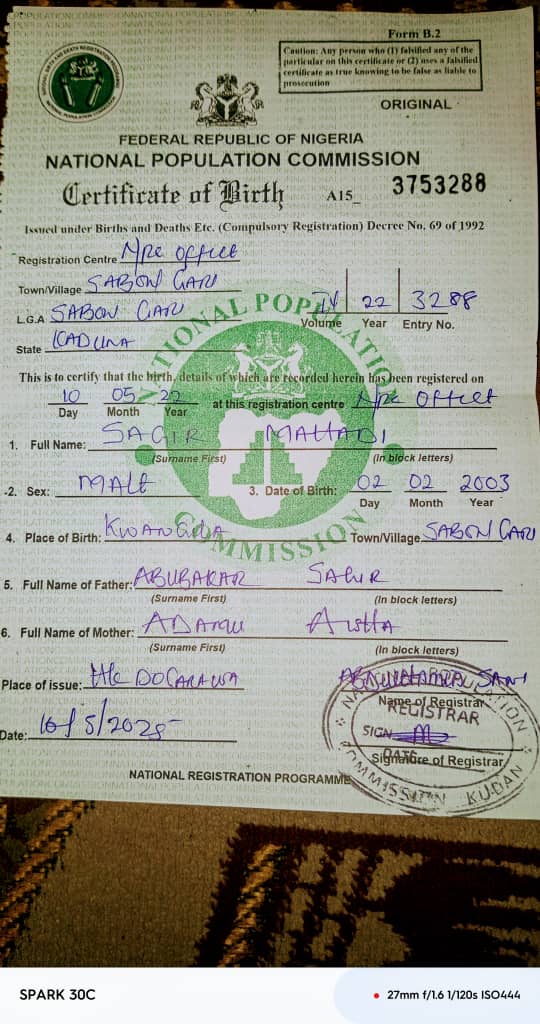 Form B.2
Caution: Any person who (1) falsified any of the
particular on this certificate or (2) uses a falsified
certificate as true knowing to be false as liable to
prosecution
ORIGINAL
FEDERAL REPUBLIC OF NIGERIA
NATIONAL POPULATION COMMISSION
Certificate of Birth A15_ 3753288
Issued under Births and Deaths Etc. (Compulsory Registration) Decree No. 69 of 1992
Registration Centre Npc office
Town/Village SABON GARI
L.G.A SABON GARI 22 3288
Volume Year Entry No.
State KADUNA
NATIONAL POPULATION COMMISSION
This is to certify that the birth, details of which are recorded herein has been registered on
10 05 22 at this registration centre Npc office
Day Month Year
1. Full Name: SAGIR MAHADI
(Surname First) (In block letters)
2. Sex: MALE 3. Date of Birth: 02 02 2003
Day Month Year
4. Place of Birth: Town/Village SABON GARI
5. Full Name of Father: ABUBAKAR SAGIR
(Surname First) (In block letters)
6. Full Name of Mother: ADAMU
(Surname First) (In block letters)
Place of issue: SANI
Name of Registrar
REGISTRAR
SIGN
Date:
DATE
Signature of Registrar
NATIONAL POPULATION COMMISSION KUDAN
NATIONAL REGISTRATION PROGRAMME
SPARK 30C
27mm f/1.6 1/120s ISO444